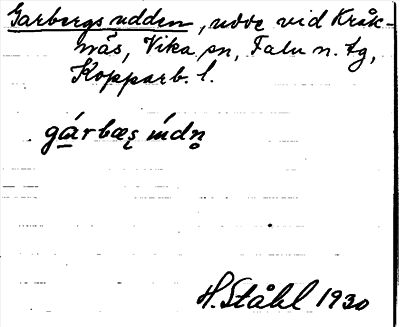 Garbergsudden, udde vid Kråk-
näs, Vika sn, Falu n. tg,
Kopparb. l.
gárbæs úddn̥
H. Ståhl 1930